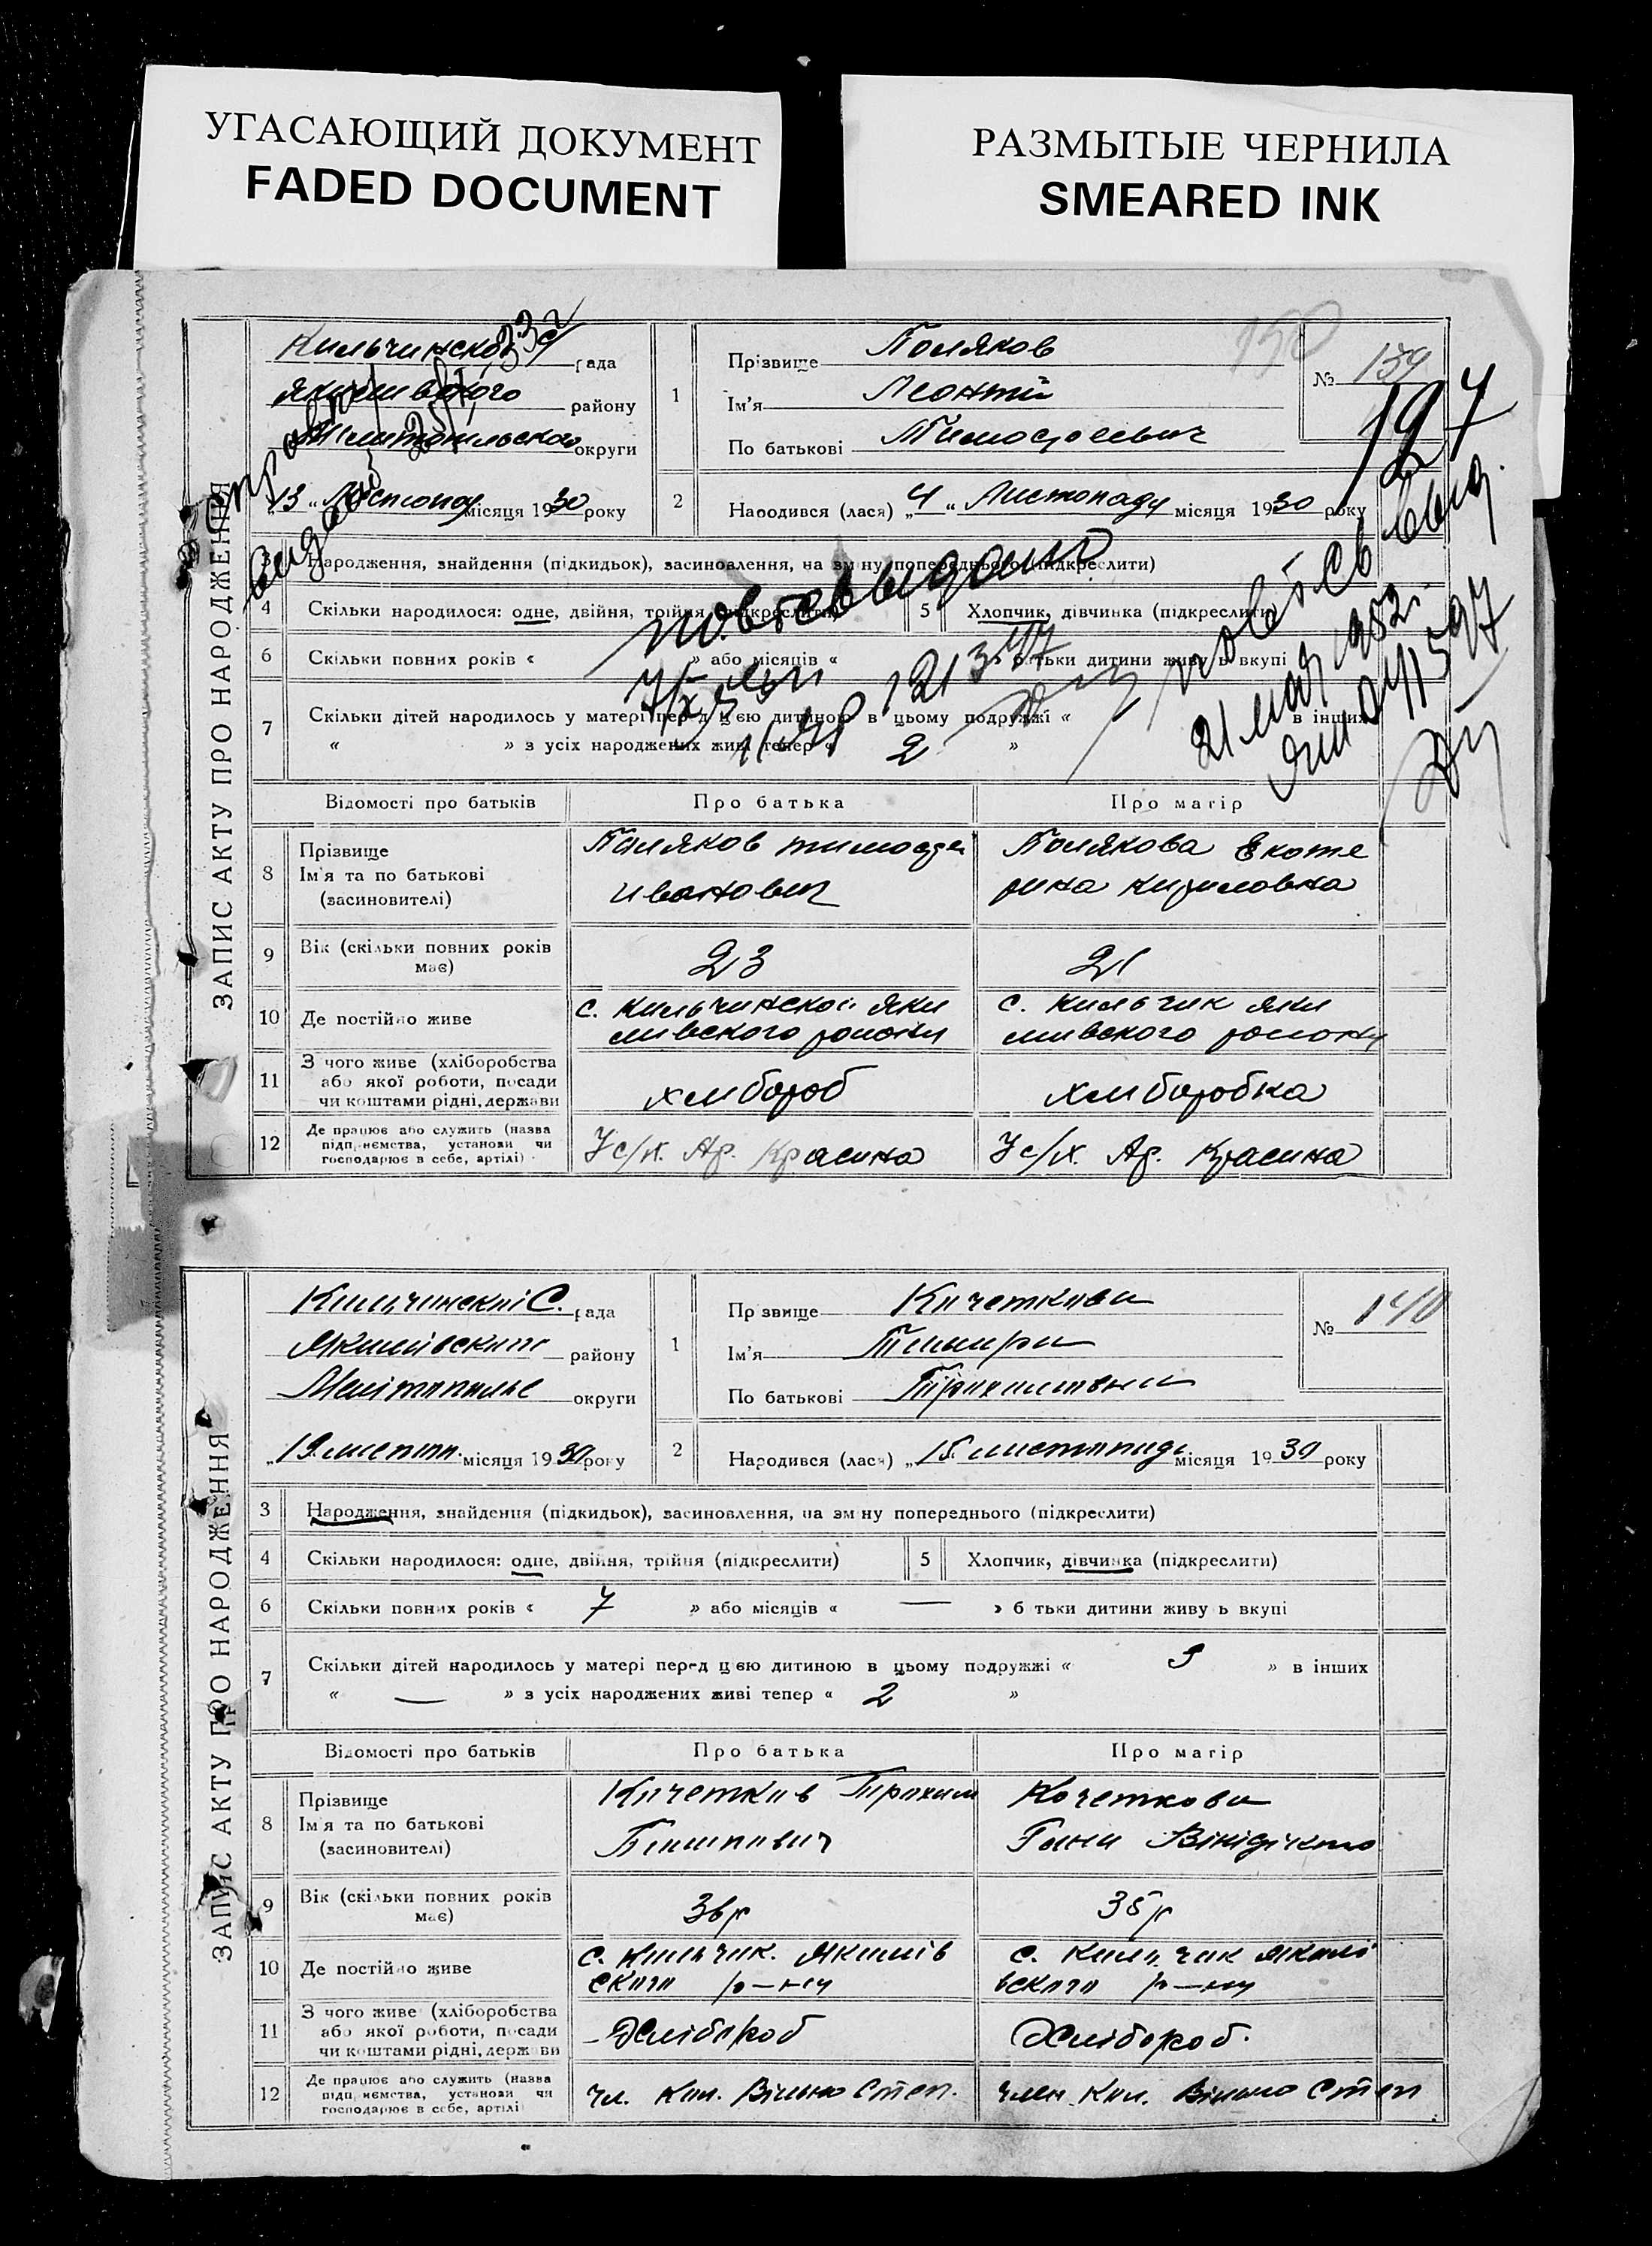 УГАСАЮЩИЙ ДОКУМЕНТ
FADED DOCUMENT
РАЗМЫТЫЕ ЧЕРНИЛА
SMEARED INK
ЗАПИС АКТУ ПРО НАРОДЖЕННЯ
Кильчинской рада
району
округи
13 місяця 1930 року
1
Прізвище Поляков
Ім'я Леонтій
По батькові Тимофеевич
150
№ 139
197
2
Народився (лася) „4“ Листопаду місяця 1930 року
3 Народження, знайдення (підкидьок), засиновлення, на зміну попереднього (підкреслити)
4 Скільки народилося: одне, двійня, трійня (підкреслити)
5 Хлопчик, дівчинка (підкреслити)
6 Скільки повних років « » або місяців « » батьки дитини живуть вкупі
7 Скільки дітей народилось у матері перед цією дитиною в цьому подружжі « в інших
« » з усіх народжених живі тепер « 2 »
21 мая 1952 г.
Відомості про батьків
Про батька
Про матір
8 Прізвище
Ім'я та по батькові
(засиновителі)
Поляков тимофей
иванович
Полякова Екате
рина кириловна
9 Вік (скільки повних років
має)
23
21
10 Де постійно живе
с. кильчинской яки
мивского району
с. кильчик яки
мивского району
11 З чого живе (хліборобства
або якої роботи, посади
чи коштами рідні, держави
хлибороб
хлиборобка
12 Де працює або служить (назва
підприємства, установи чи
господарює в себе, артілі)
У с/х. Ар. Красина
У с/х. Ар. Красина
ЗАПИС АКТУ ПРО НАРОДЖЕННЯ
Кильчинскої С. рада
Якимівского району
Мелітопильс округи
„19 листоп. місяця 1930 року
1
Прізвище Кочеткова
Ім'я Тамара
По батькові Трохимовна
№ 140
2
Народився (лася) „15 листопада місяця 1930 року
3 Народження, знайдення (підкидьок), засиновлення, на зміну попереднього (підкреслити)
4 Скільки народилося: одне, двійня, трійня (підкреслити)
5 Хлопчик, дівчинка (підкреслити)
6 Скільки повних років « 7 » або місяців « — » батьки дитини живуть вкупі
7 Скільки дітей народилось у матері перед цією дитиною в цьому подружжі « 3 » в інших
« — » з усіх народжених живі тепер « 2 »
Відомості про батьків
Про батька
Про матір
8 Прізвище
Ім'я та по батькові
(засиновителі)
Кочетков Трохим
Кочеткова
Ганна
9 Вік (скільки повних років
має)
36 р
35 р
10 Де постійно живе
с. Кильчик. Якимів
ского р-ну
с. Кильчик Якимі
вского р-ну
11 З чого живе (хліборобства
або якої роботи, посади
чи коштами рідні, держави
Хлібороб
Хлібороб.
12 Де працює або служить (назва
підприємства, установи чи
господарює в себе, артілі
чл. Кол. Вільно Степ.
член Кол. Вільно Степ